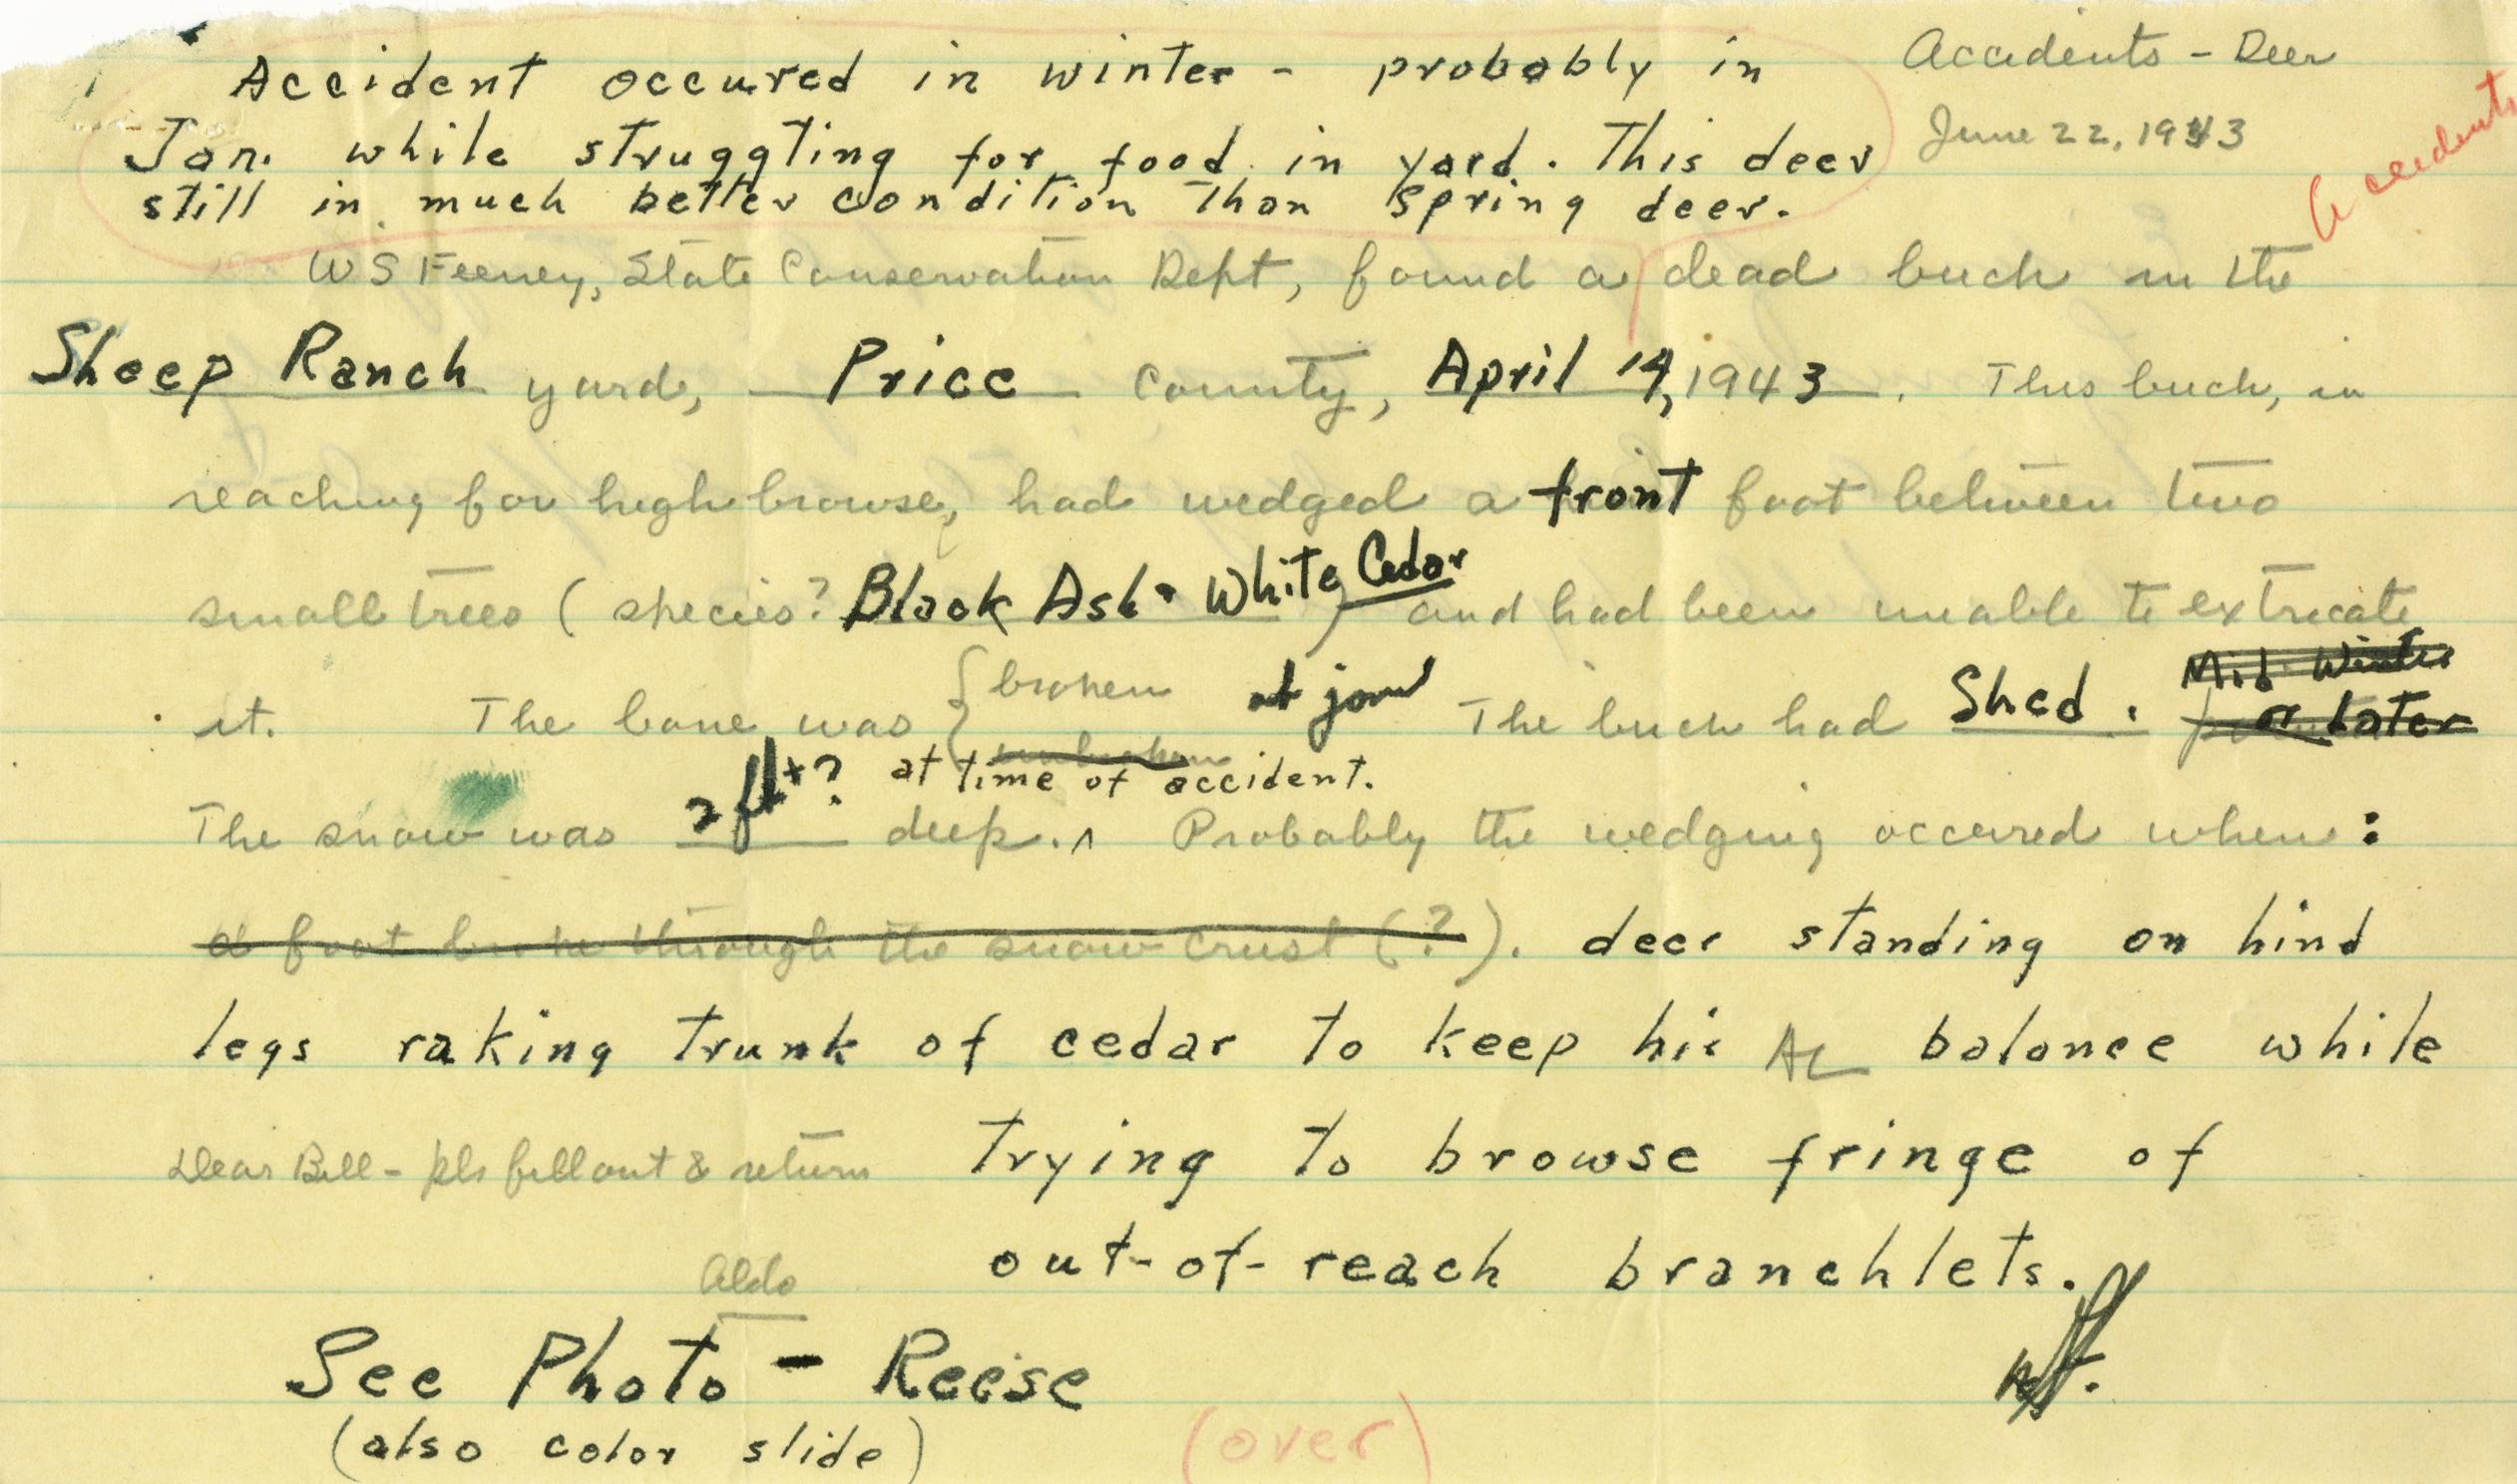 Accident occured in winter - probably in
Accidents - Deer
Jan. while struggling for food in yard. This deer
June 22, 1943
still in much better condition than spring deer.
Accidents
W S Feeney, State Conservation Dept, found a dead buck in the
Sheep Ranch yard, Price County, April 14, 1943. This buck, in
reaching for high browse, had wedged a front foot between two
small trees (species? Black Ash - White Cedar) and had been unable to extricate
it. The bone was { broken at joint The buck had Shed. Mid Winter
unbroken or Later
2 ft+? at time of accident.
The snow was deep. ^ Probably the wedging occured when:
a foot broke through the snow crust (?). deer standing on hind
legs raking trunk of cedar to keep his AL balance while
Dear Bill - pls fill out & return trying to browse fringe of
out-of-reach branchlets.
Aldo
See Photo - Reese
(also color slide)
(over)